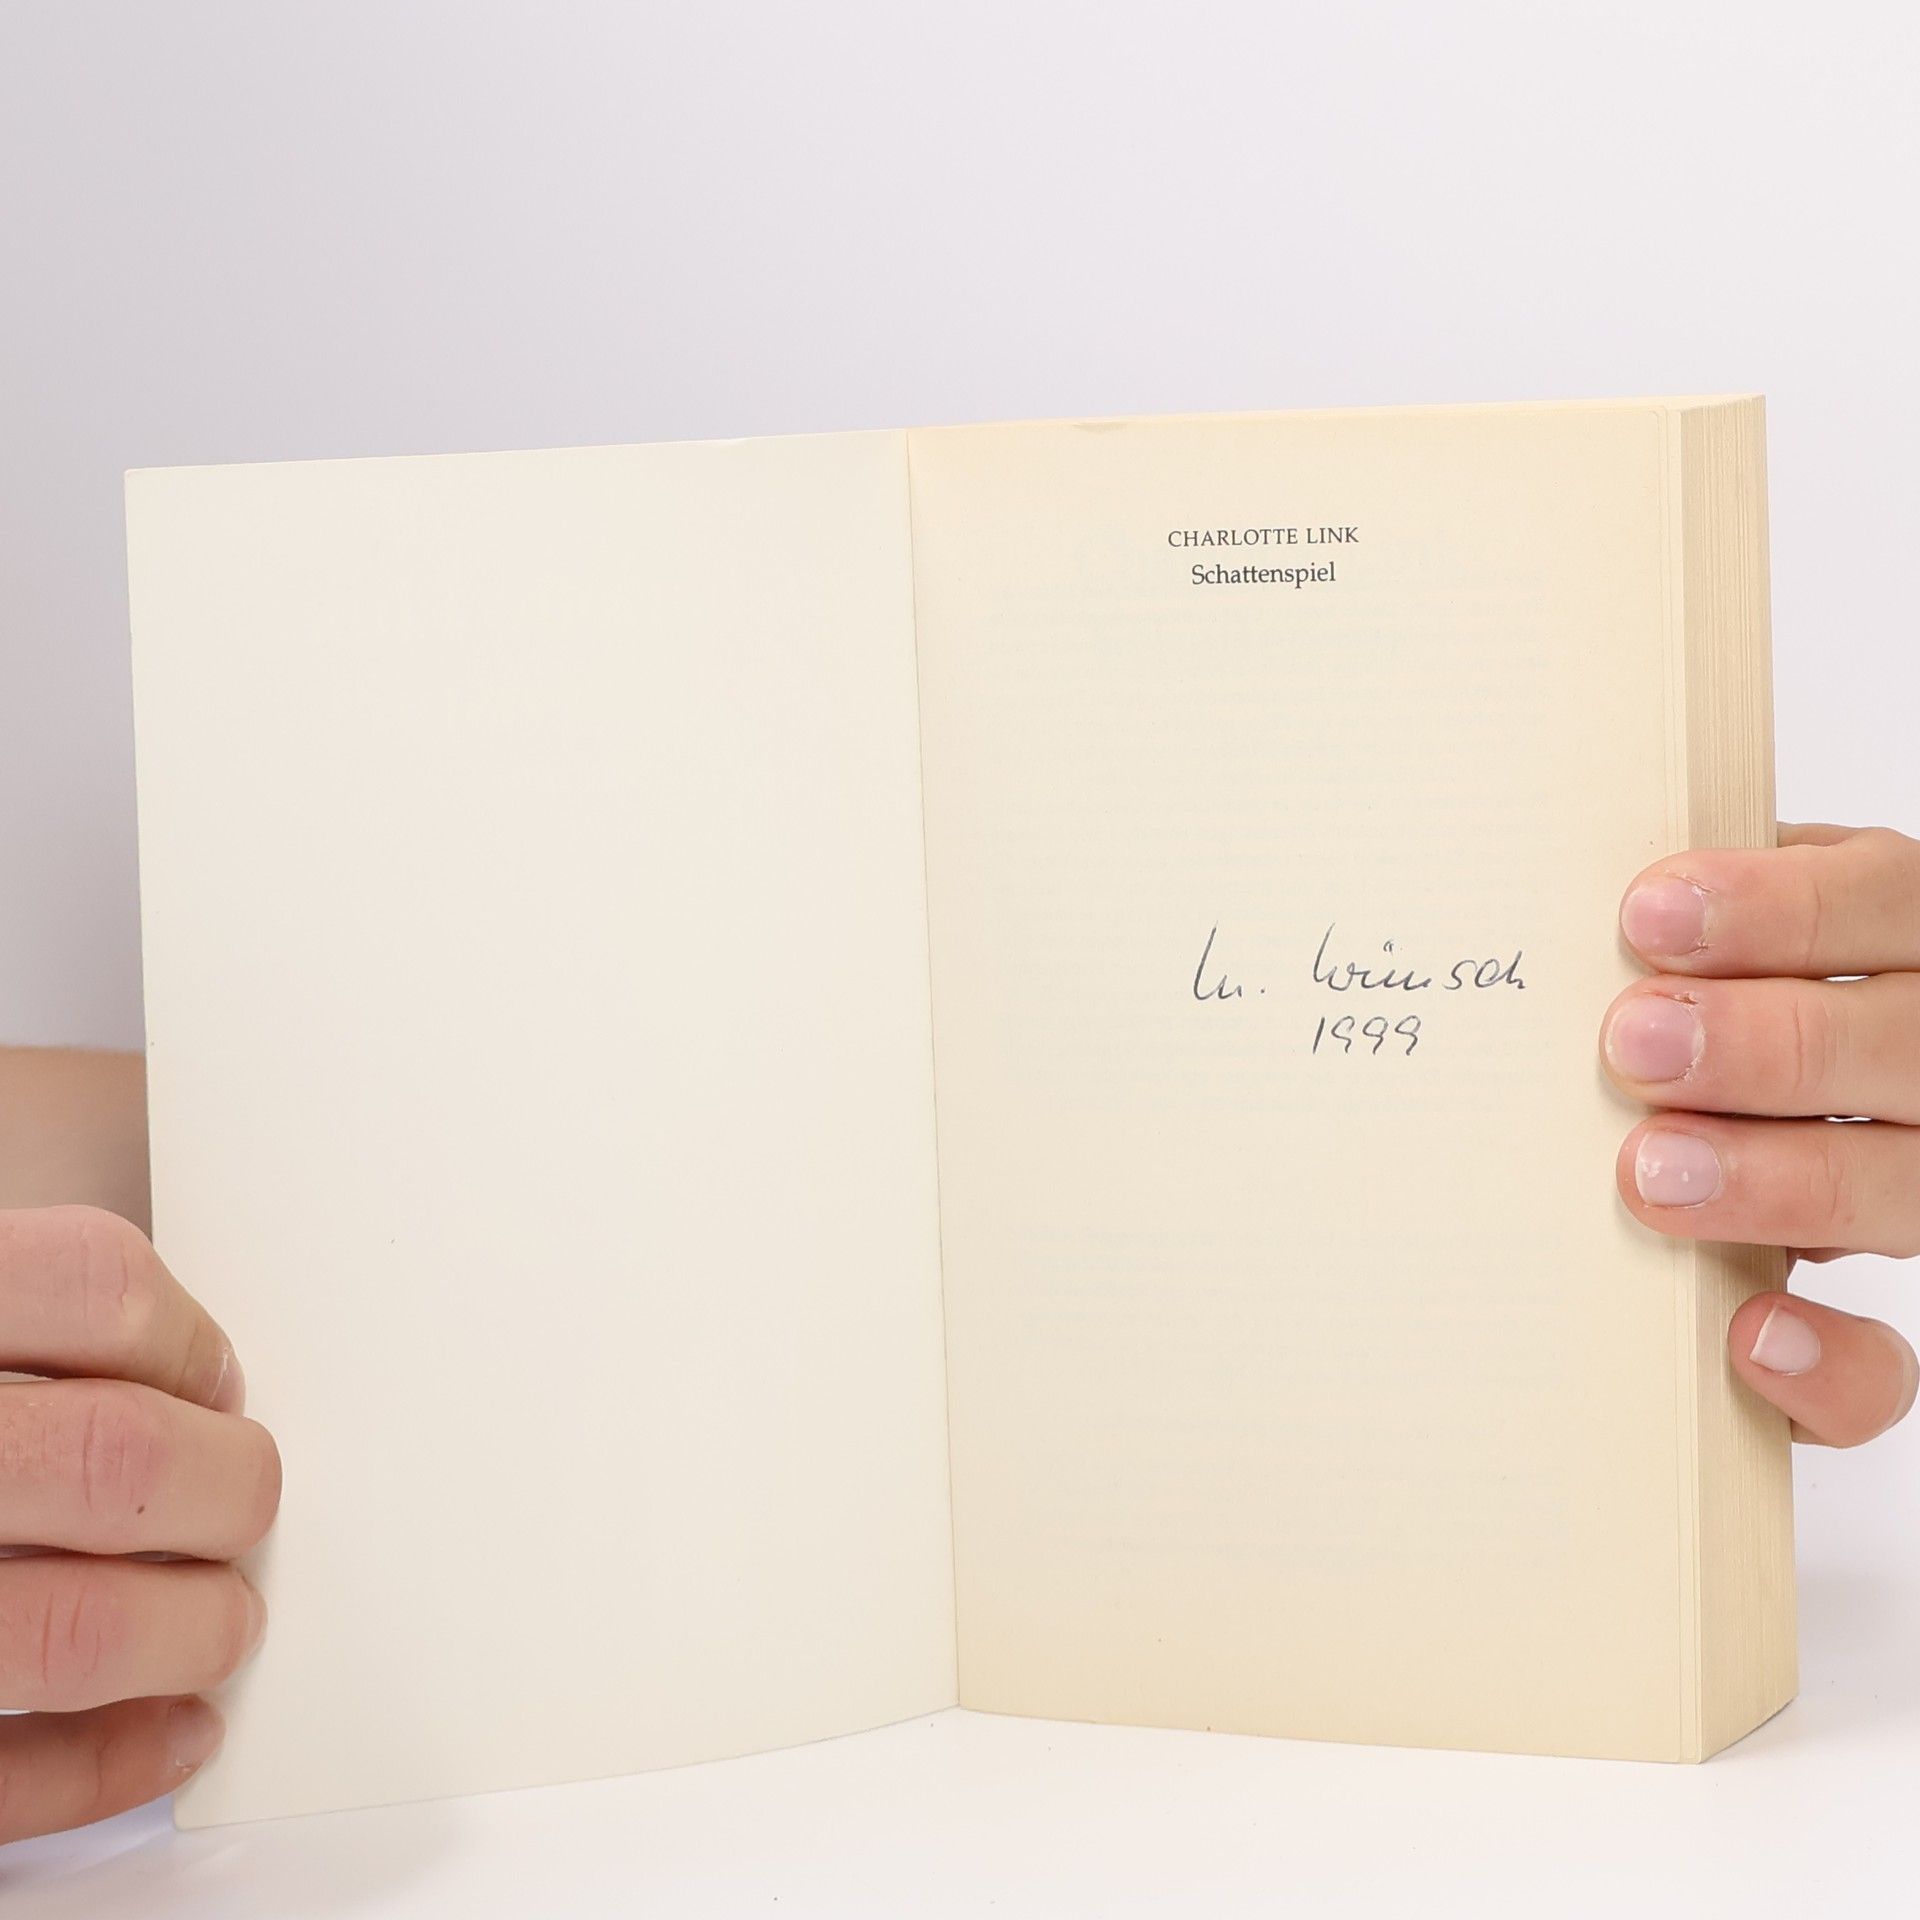 CHARLOTTE LINK
Schattenspiel
M. Wünsch
1999